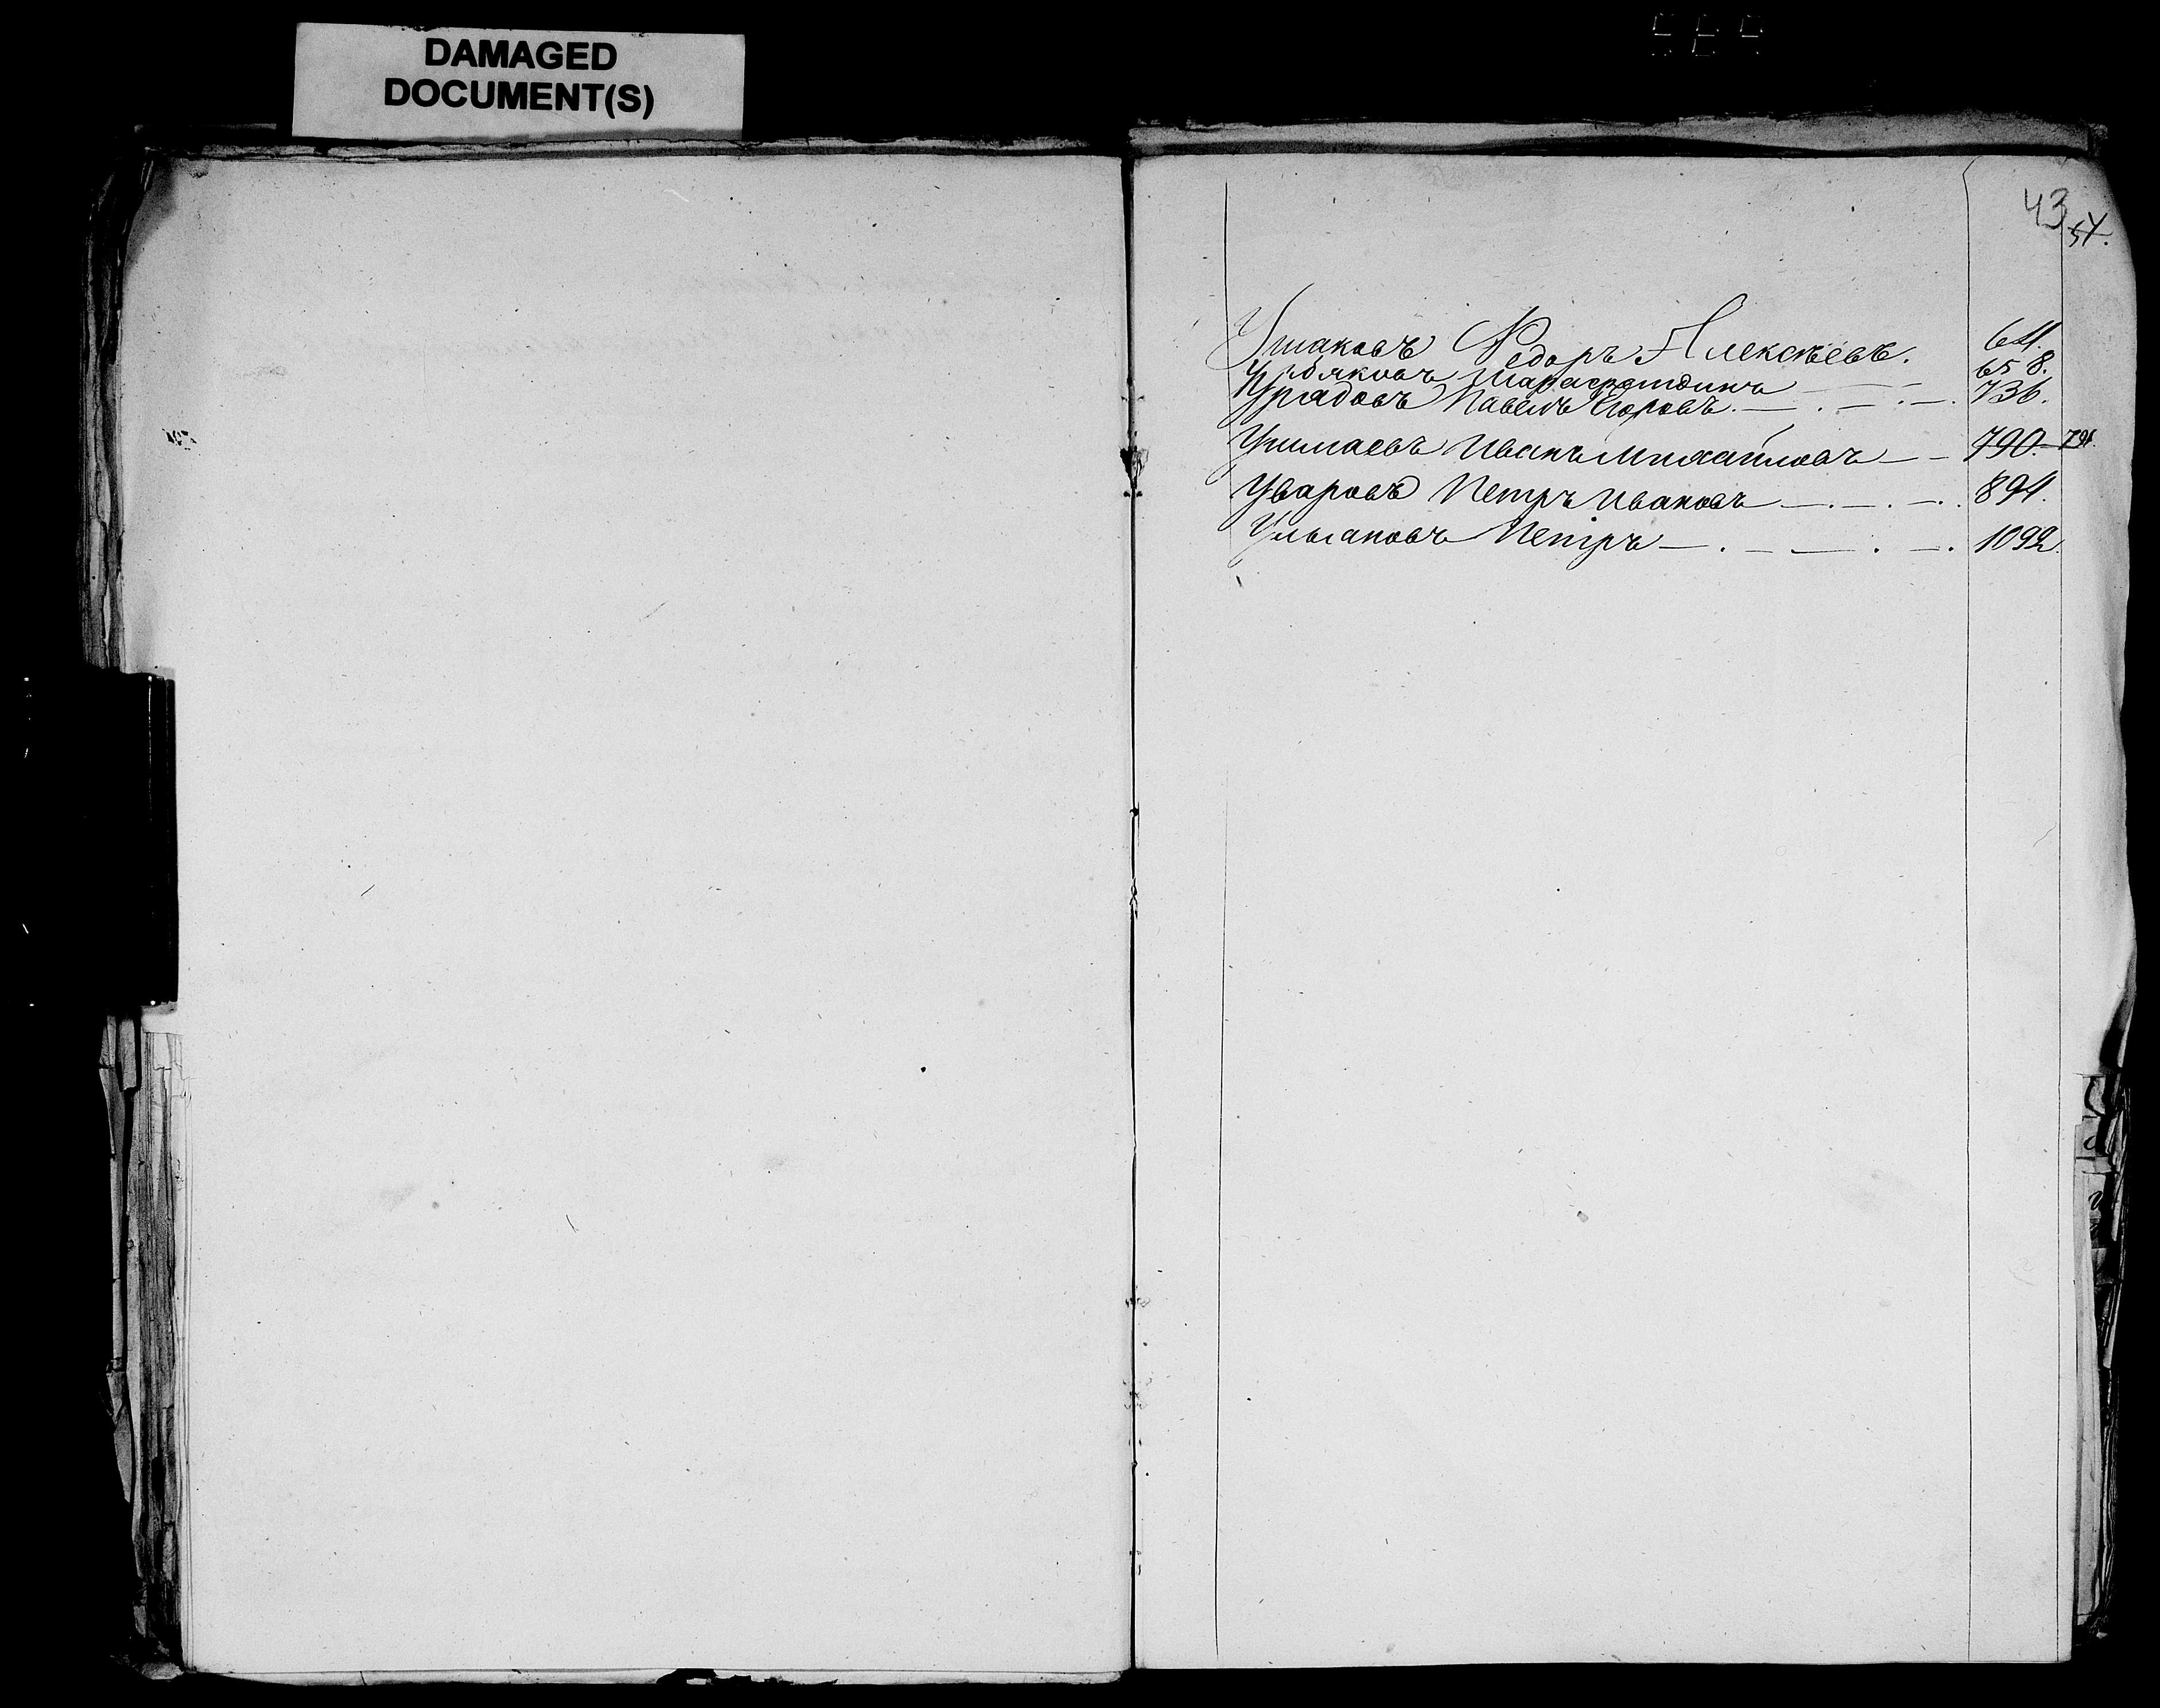 DAMAGED
DOCUMENT(S)
43
54.
Ушаковъ Федоръ Алексѣевъ. 641.
658.
Урядовъ Павелъ Егоровъ. — . — . — . 736.
Иванъ Михайловъ — — 790. — 791.
Уваровъ Петръ Ивановъ — . — . — . 894.
Ульяновъ Петръ — . — — . — . 1092.